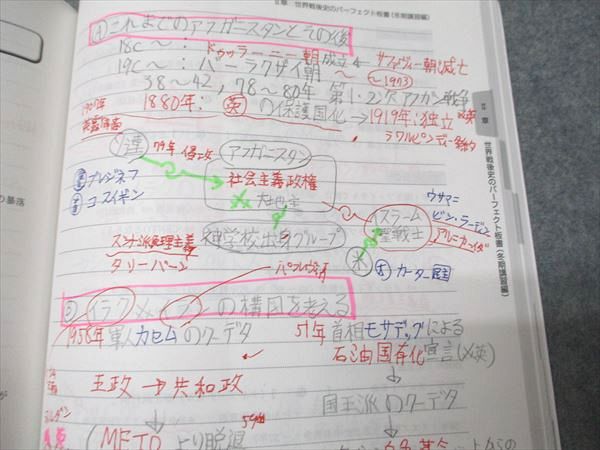 II章 世界戦後史のパーフェクト板書(冬期講習編)
④これまでのアフガニスタンとその後
18C〜：ドゥッラーニー朝成立←サファヴィー朝滅亡
19C〜：バーラクザイ朝 〜
〜1973
38〜42, 78〜80年 第1・2次アフガン戦争
1907年
英露協商
1880年：英の保護国化→1919年：独立
ラワルピンディー条約
ソ連
79年 侵攻
アフガニスタン
社会主義政権
大地主
ブレジネフ
コスイギン
イスラーム
聖戦士
ウサマ＝
ビン・ラーディン
アルニカーイダ
スンナ派原理主義
ターリバーン
神学校出身グループ
米
カーター民主
パフレヴィー
イラク××イランの構図を考える
1958年 軍人カセムのクーデタ
51年 首相モサデッグによる
石油国有化宣言(×英)
王政→共和政
国王派のクーデタ
(METOより脱退
II章
世界戦後史のパーフェクト板書(冬期講習編)
の暴落